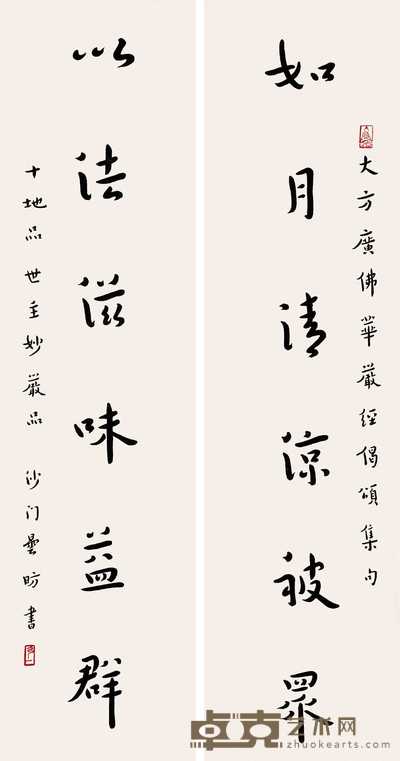 大方廣佛華嚴經偈頌集句
如月清涼被眾
以法滋味益群
十地品 世主妙嚴品 沙门曇昉書
卓克艺术网
zhuokearts.com